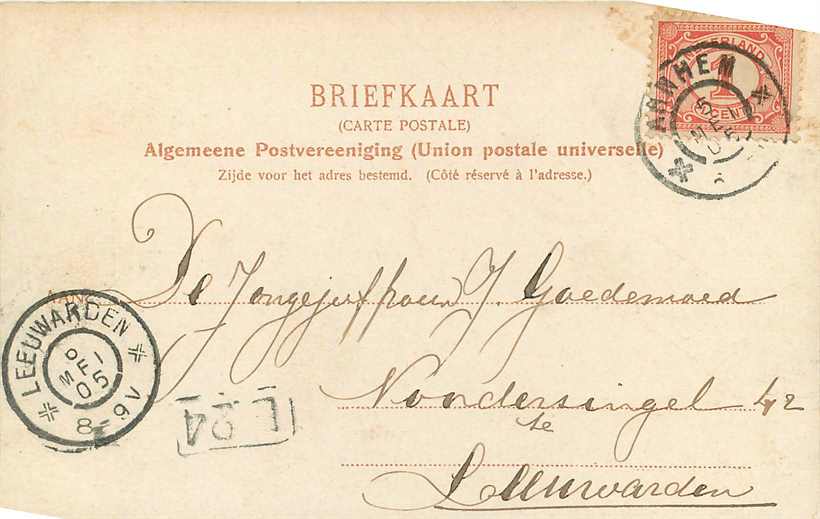 NEDERLAND
1
CENT
ARNHEM
5
MEI
05
BRIEFKAART
(CARTE POSTALE)
Algemeene Postvereeniging (Union postale universelle)
Zijde voor het adres bestemd. (Côté réservé à l'adresse.)
AAN
De Jongejufrouw J. Goedemoed
Noordersingel 42
te
Leeuwarden
LEEUWARDEN
6
MEI
05
8-9V
L.24